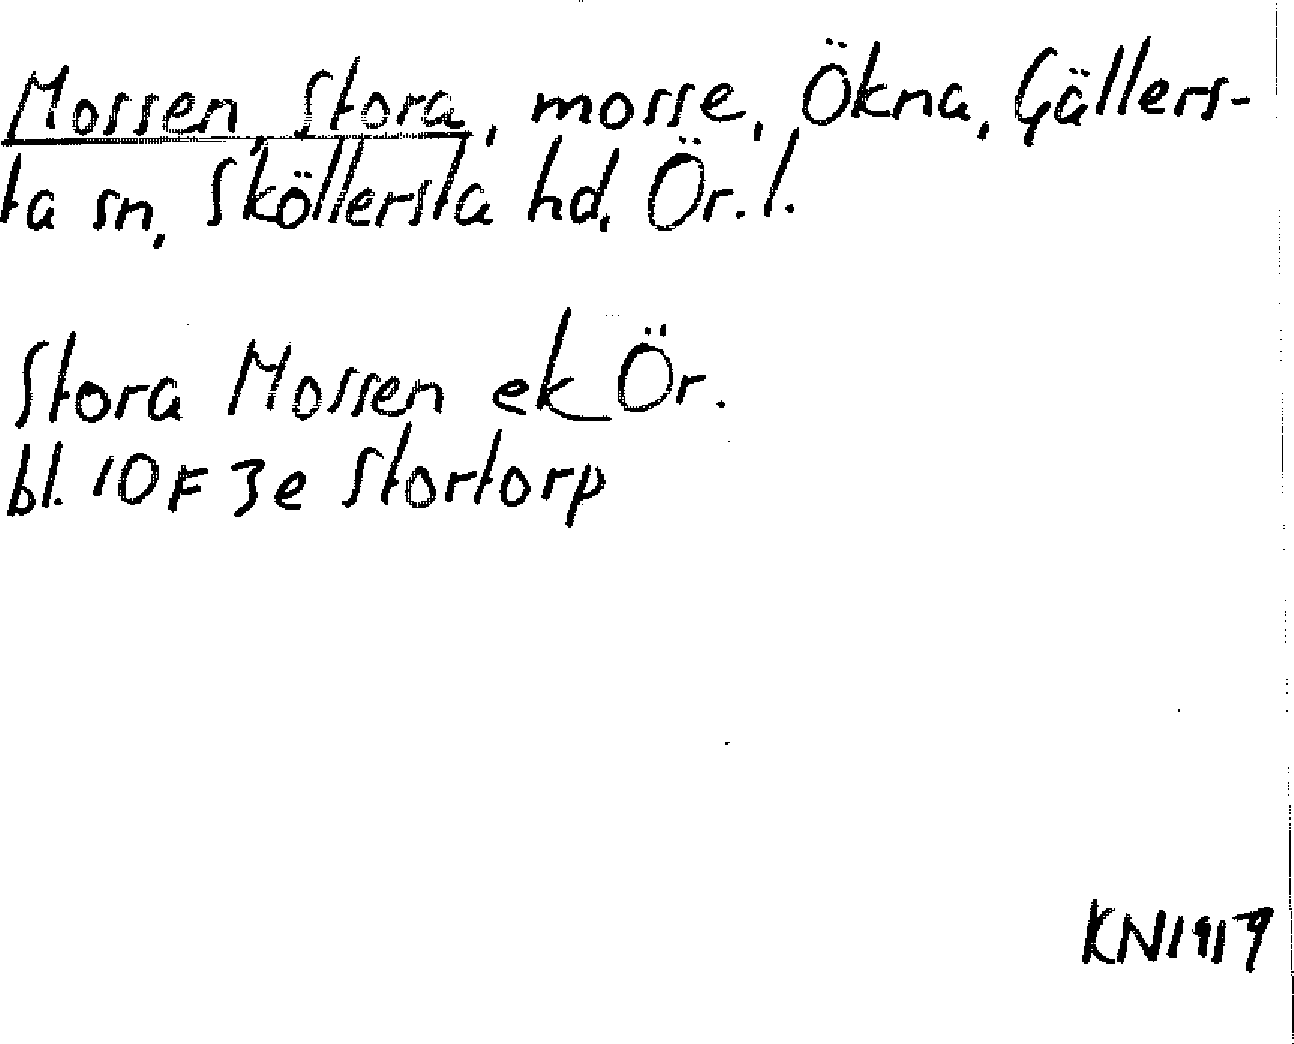 Mossen, Stora, mosse, Ökna, Gällers-
ta sn, Sköllersta hd, Ör. l.
Stora Mossen ek Ör.
bl. 10F 3e Stortorp
KN1917